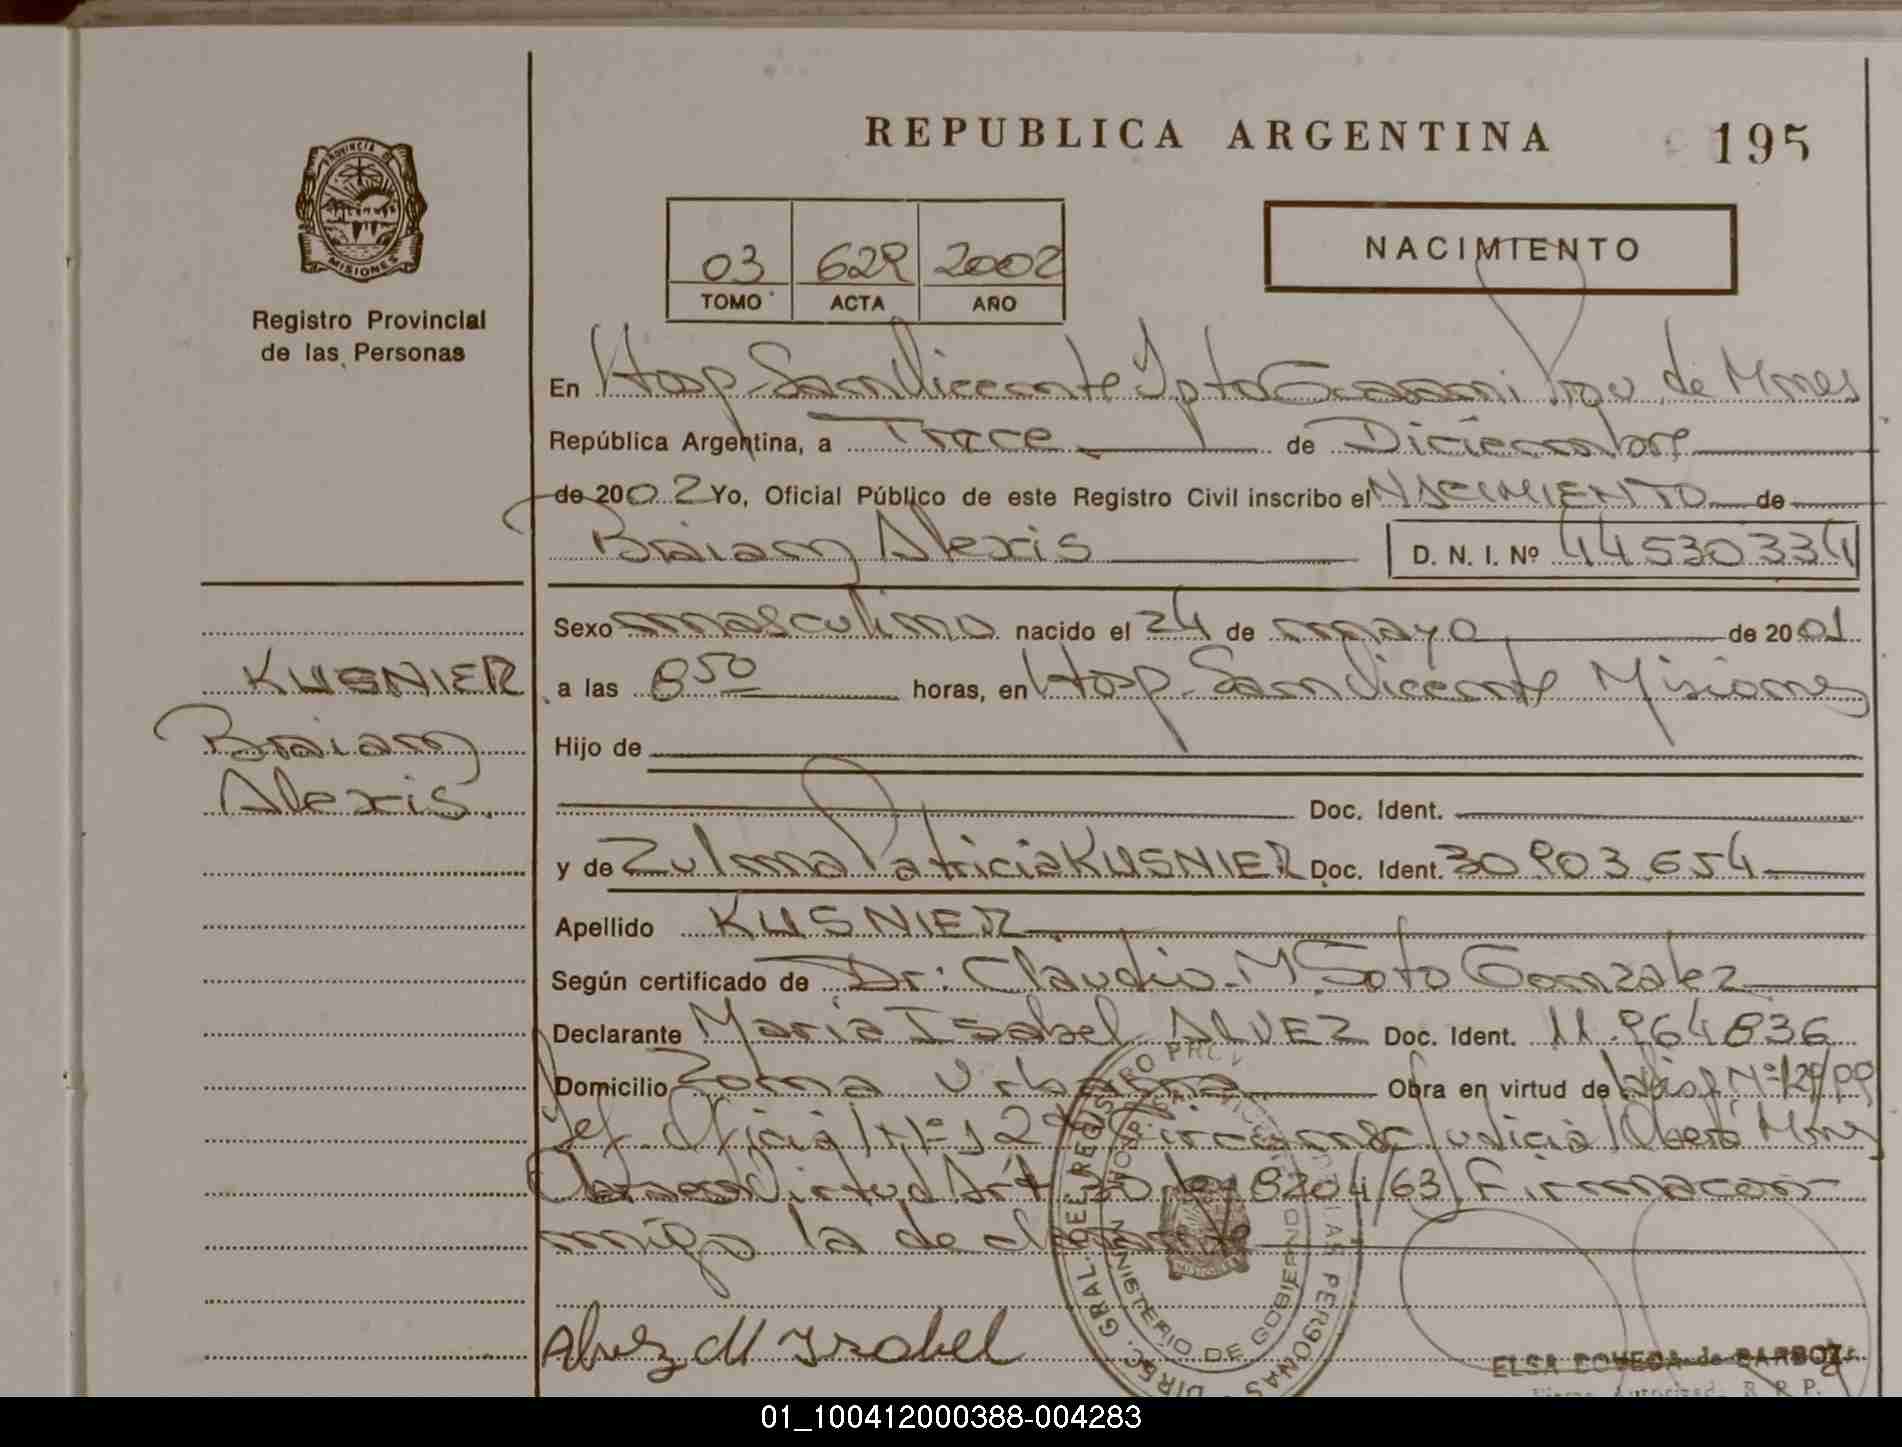 REPUBLICA ARGENTINA
195
PROVINCIA DE
MISIONES
Registro Provincial
de las Personas
03 629 2002
TOMO ACTA AÑO
NACIMIENTO
En Hosp. San Vicente Dpto Guarani Pcu de Mnes
República Argentina, a Trece de Diciembre
de 2002 Yo, Oficial Público de este Registro Civil inscribo el NACIMIENTO de
Braian Alexis D. N. I. Nº 44530334
Sexo masculino nacido el 24 de mayo de 2001
KUSNIER
Braian
Alexis.
a las 8 50 horas, en Hosp. San Vicente Misiones
Hijo de
Doc. Ident.
y de Zulma Patricia KUSNIER Doc. Ident. 30.903.654
Apellido KUSNIER
Según certificado de Dr: Claudio M Soto Gonzalez
Declarante Maria Isabel ALVEZ Doc. Ident. 11.964836
Domicilio Zona Urbana Obra en virtud de Nº 129/99
Def. Oficial Nº 1 2da Circunsc Judicial Oberá Mnes
Obra en Virtud Art 30 ley 8204/63, Firma con-
migo la declarante
Alvez M Isabel
DIREC. GRAL. DEL REGISTRO PROV. DE LAS PERSONAS
MINISTERIO DE GOBIERNO
MISIONES
ELSA de BARBOZA
Firma Autorizad. R. R. P.
01_100412000388-004283